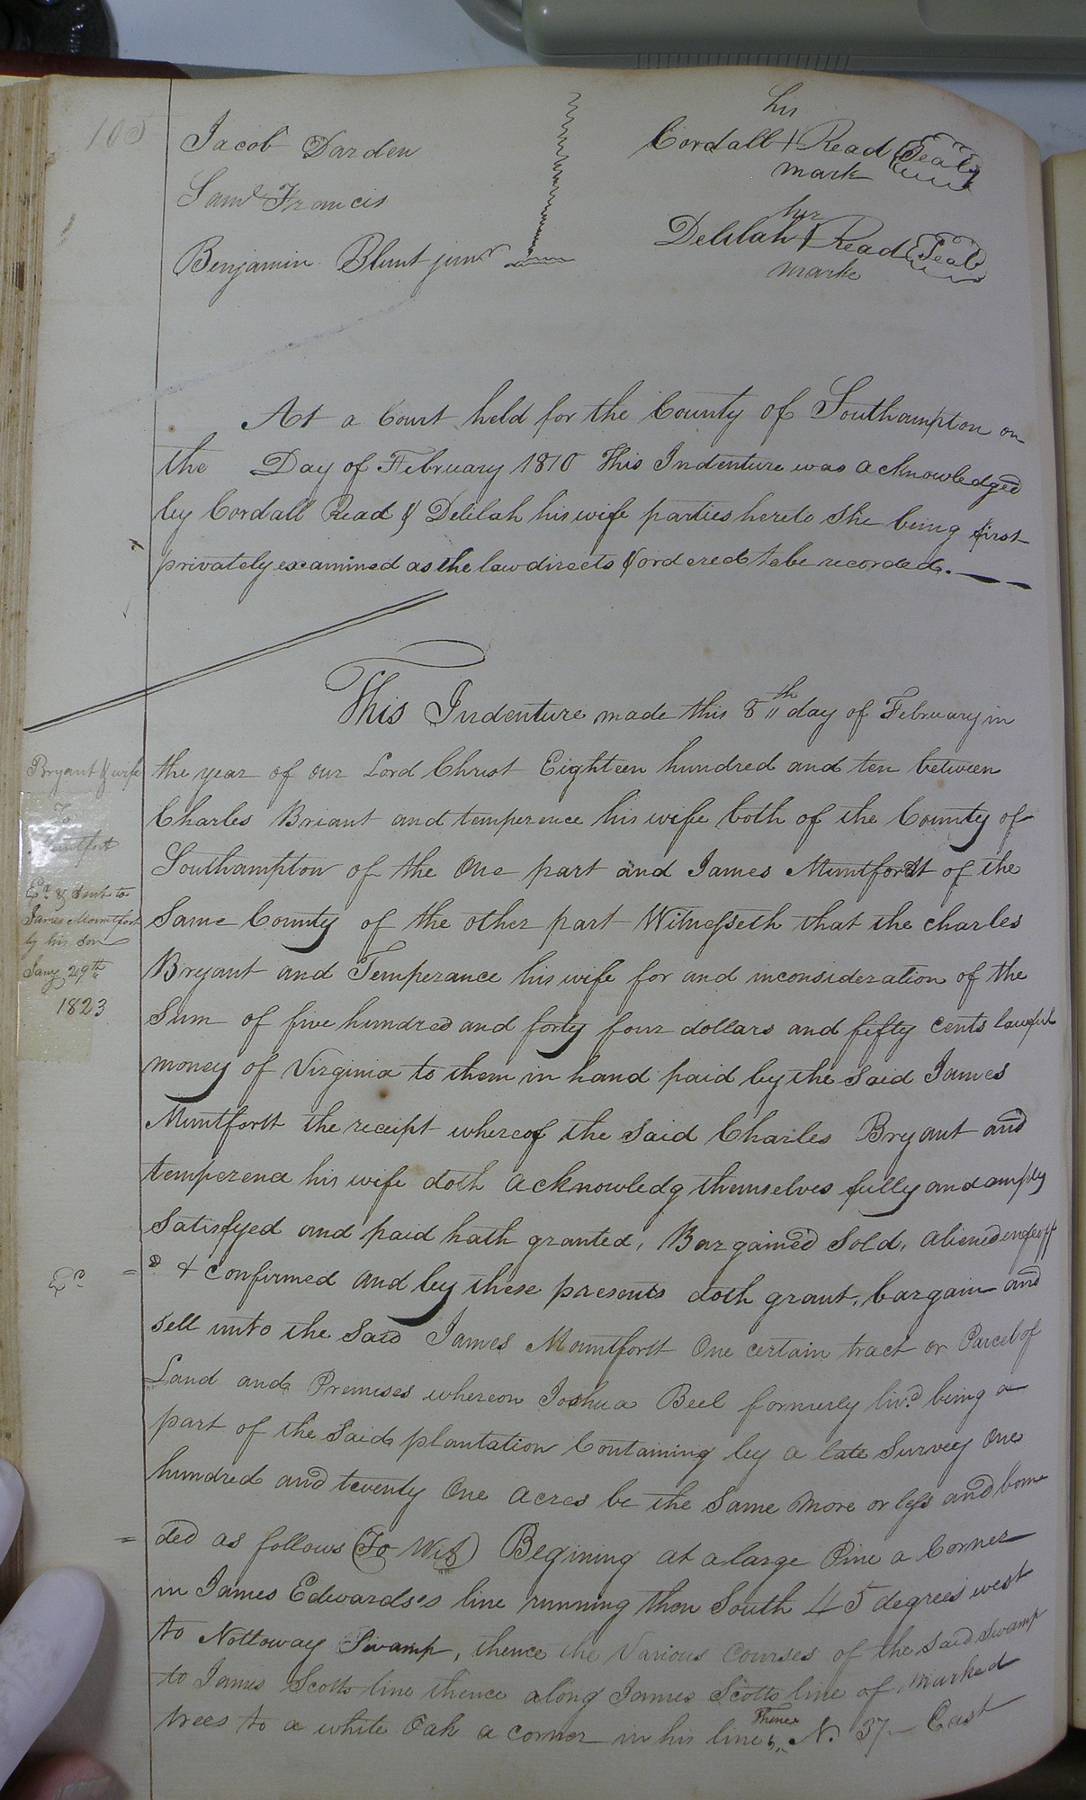 105
Jacob Darden
Saml Francis
Benjamin Blunt junr
his
Cordall + Read (Seal)
mark
her
Delilah + Read (Seal)
marke
At a Court held for the County of Southampton on
the Day of February 1810 This Indenture was acknowledged
by Cordall Read & Delilah his wife parties hereto She being first
privately examined as the law directs & ordered to be recorded.
This Indenture made this 8th day of February in
the year of our Lord Christ Eighteen hundred and ten between
Charles Briant and temperence his wife both of the County of
Southampton of the One part and James Muntfortt of the
Same County of the other part Witnesseth that the charles
Bryant and Temperance his wife for and inconsideration of the
Sum of five hundred and forty four dollars and fifty cents lawful
money of Virginia to them in hand paid by the Said James
Muntfortt the receipt whereof the Said Charles Bryant and
temperena his wife doth acknowledg themselves fully and amply
Satisfyed and paid hath granted, Bargained Sold, aliened enfeoff
= d & confirmed and by these presents doth grant, bargain and
sell unto the Said James Mountfortt One certain tract or Parcel of
Land and Premises whereon Joshua Beel formerly livd being a
part of the Said plantation Containing by a late Survey One
hundred and twenty One acres be the Same More or less and boun
= ded as follows (To Wit) Begining at a large Pine a Corner
in James Edwardses line running then South 45 degrees west
to Nottoway Swamp, thence the Various Courses of the Said Swamp
to James Scotts line thence along James Scotts line of Marked
trees to a white Oak a corner in his line, Thence N. 37 East
Bryant & wife
To
Muntfort
Ed & Sent to
James Mountfort
by his Son
Jany 29th
1823
Ed